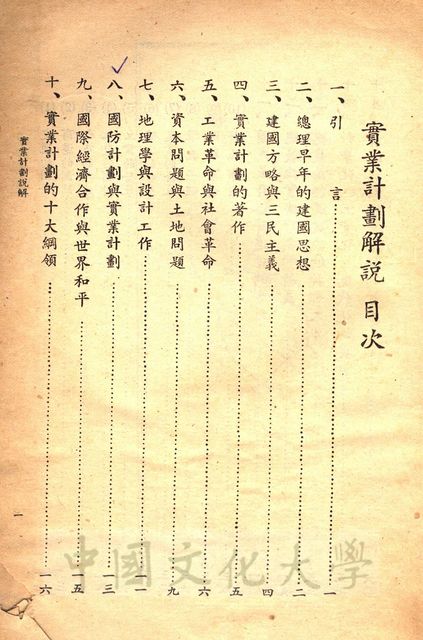 實業計劃解說 目次
一、引言⋯⋯一
二、總理早年的建國思想⋯⋯二
三、建國方略與三民主義⋯⋯四
四、實業計劃的著作⋯⋯五
五、工業革命與社會革命⋯⋯六
六、資本問題與土地問題⋯⋯九
七、地理學與設計工作⋯⋯一一
八、國防計劃與實業計劃⋯⋯一三
九、國際經濟合作與世界和平⋯⋯一五
十、實業計劃的十大綱領⋯⋯一六
實業計劃說解
一
中國文化大學